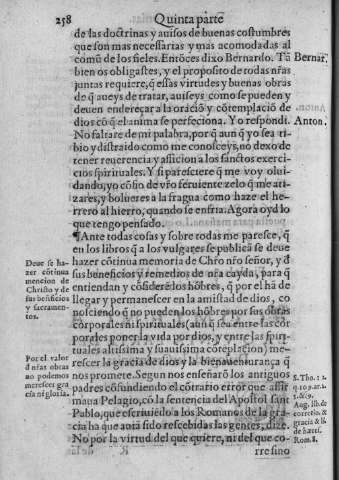 258 Quinta parte
de las doctrinas y auisos de buenas costumbres
que son mas necessarias y mas acomodadas al
comũ de los fieles. Entõces dixo Bernardo. Tã
Bernar.
bien os obligastes, y el proposito de todas nr̃as
juntas requiere, q̃ essas virtudes y buenas obras
de q̃ aueys de tratar, auiseys como se pueden y
deuen endereçar a la oració y cõtemplació de
dios cõ q̃ el anima se perfeciona. Yo respondi.
Anton.
No faltare de mi palabra, por q̃ aun q̃ yo sea ti-
bio y distraido como me conosceys, no dexo de
tener reuerencia y afficion a los sanctos exerci-
cios spirituales. Y si paresciere q̃ me voy olui-
dando, yo cõfio de vr̃o feruiente zelo q̃ me ati-
zares, y boluereis a la fragua como haze el he-
rrero al hierro, quando se enfria. Agora oyd lo
que tengo pensado.
¶Ante todas cosas y sobre todas me paresce, q̃
en los libros q̃ a los vulgares se publicã se deue
hazer cõtinua memoria de Chro nr̃o señor, y d̃
sus beneficios y remedios de nr̃a cayda, para q̃
entiendan y cõsiderẽ los hõbres, q̃ por el hã de
llegar y permanescer en la amistad de dios, co
nosciendo q̃ no pueden los hõbres por sus obras
corporales ni spirituales (aun q̃ sea entre las cor
porales poner la vida por dios, y entre las spiri-
tuales altissima y suauissima cõteplacion) me-
rescer la gracia de dios y la bienauẽturança q̃
nos promete. Segun nos enseñarõ los antiguos
padres cõfundiendo el cõtrario error que affir
maua Pelagio, cõ la sentencia del Apostol sant
Pablo, que escriuiẽdo a los Romanos de la gra
cia ha que auia sido rescebidas las gentes, dize.
No por la virtud del que quiere, ni del que co-
rre sino
Deue se ha-
zer cõtinua
mencion de
Christo y de
sus beneficios
y sacramen-
tos.
Por el valor
d̃ nr̃as obras
no podemos
merescer gra
cia ni gloria.
S. Tho. 1 2.
Aug. lib. de
correctio. &
gracia & li.
de hæres.
Rom. 8.